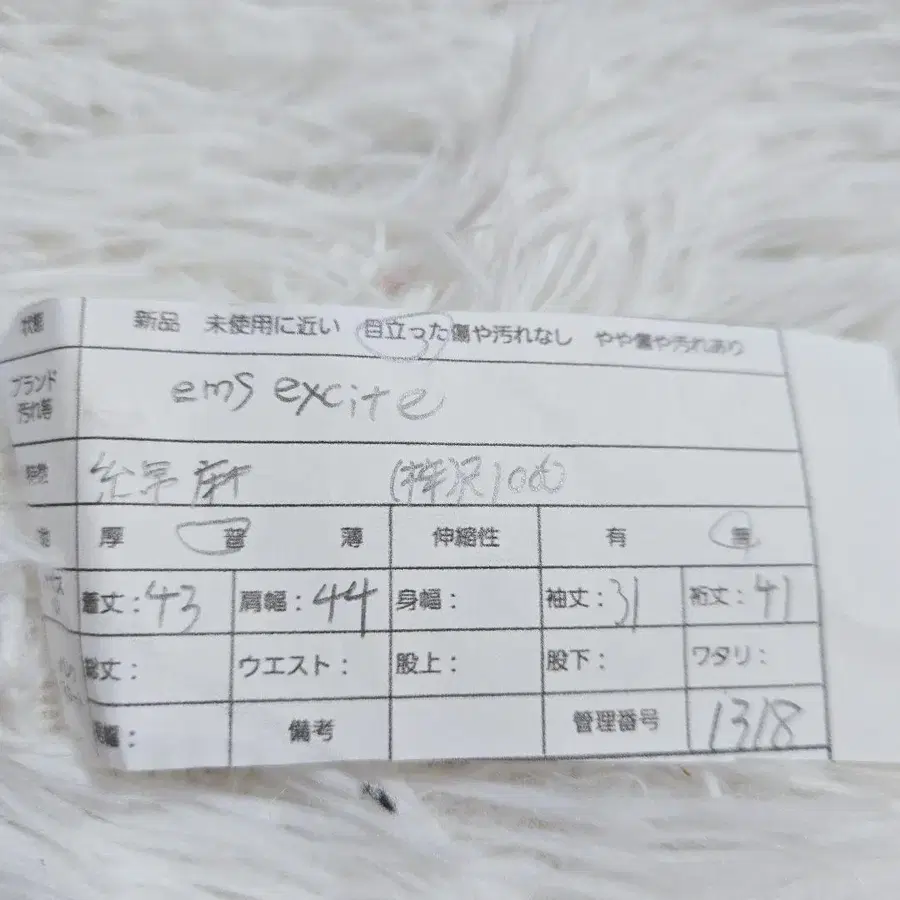 状態 新品 未使用に近い 目立った傷や汚れなし やや傷や汚れあり
ブランド 汚れ等 ems excite
厚 普 薄 伸縮性 有 無
着丈:43 肩幅:44 身幅: 袖丈:31 裄丈:41
総丈: ウエスト: 股上: 股下: ワタリ:
幅: 備考 管理番号 1318